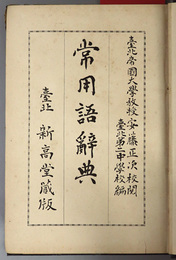 臺北帝國大學教授安藤正次校閱
臺北第二中學校編
常用語辭典
臺北 新高堂藏版